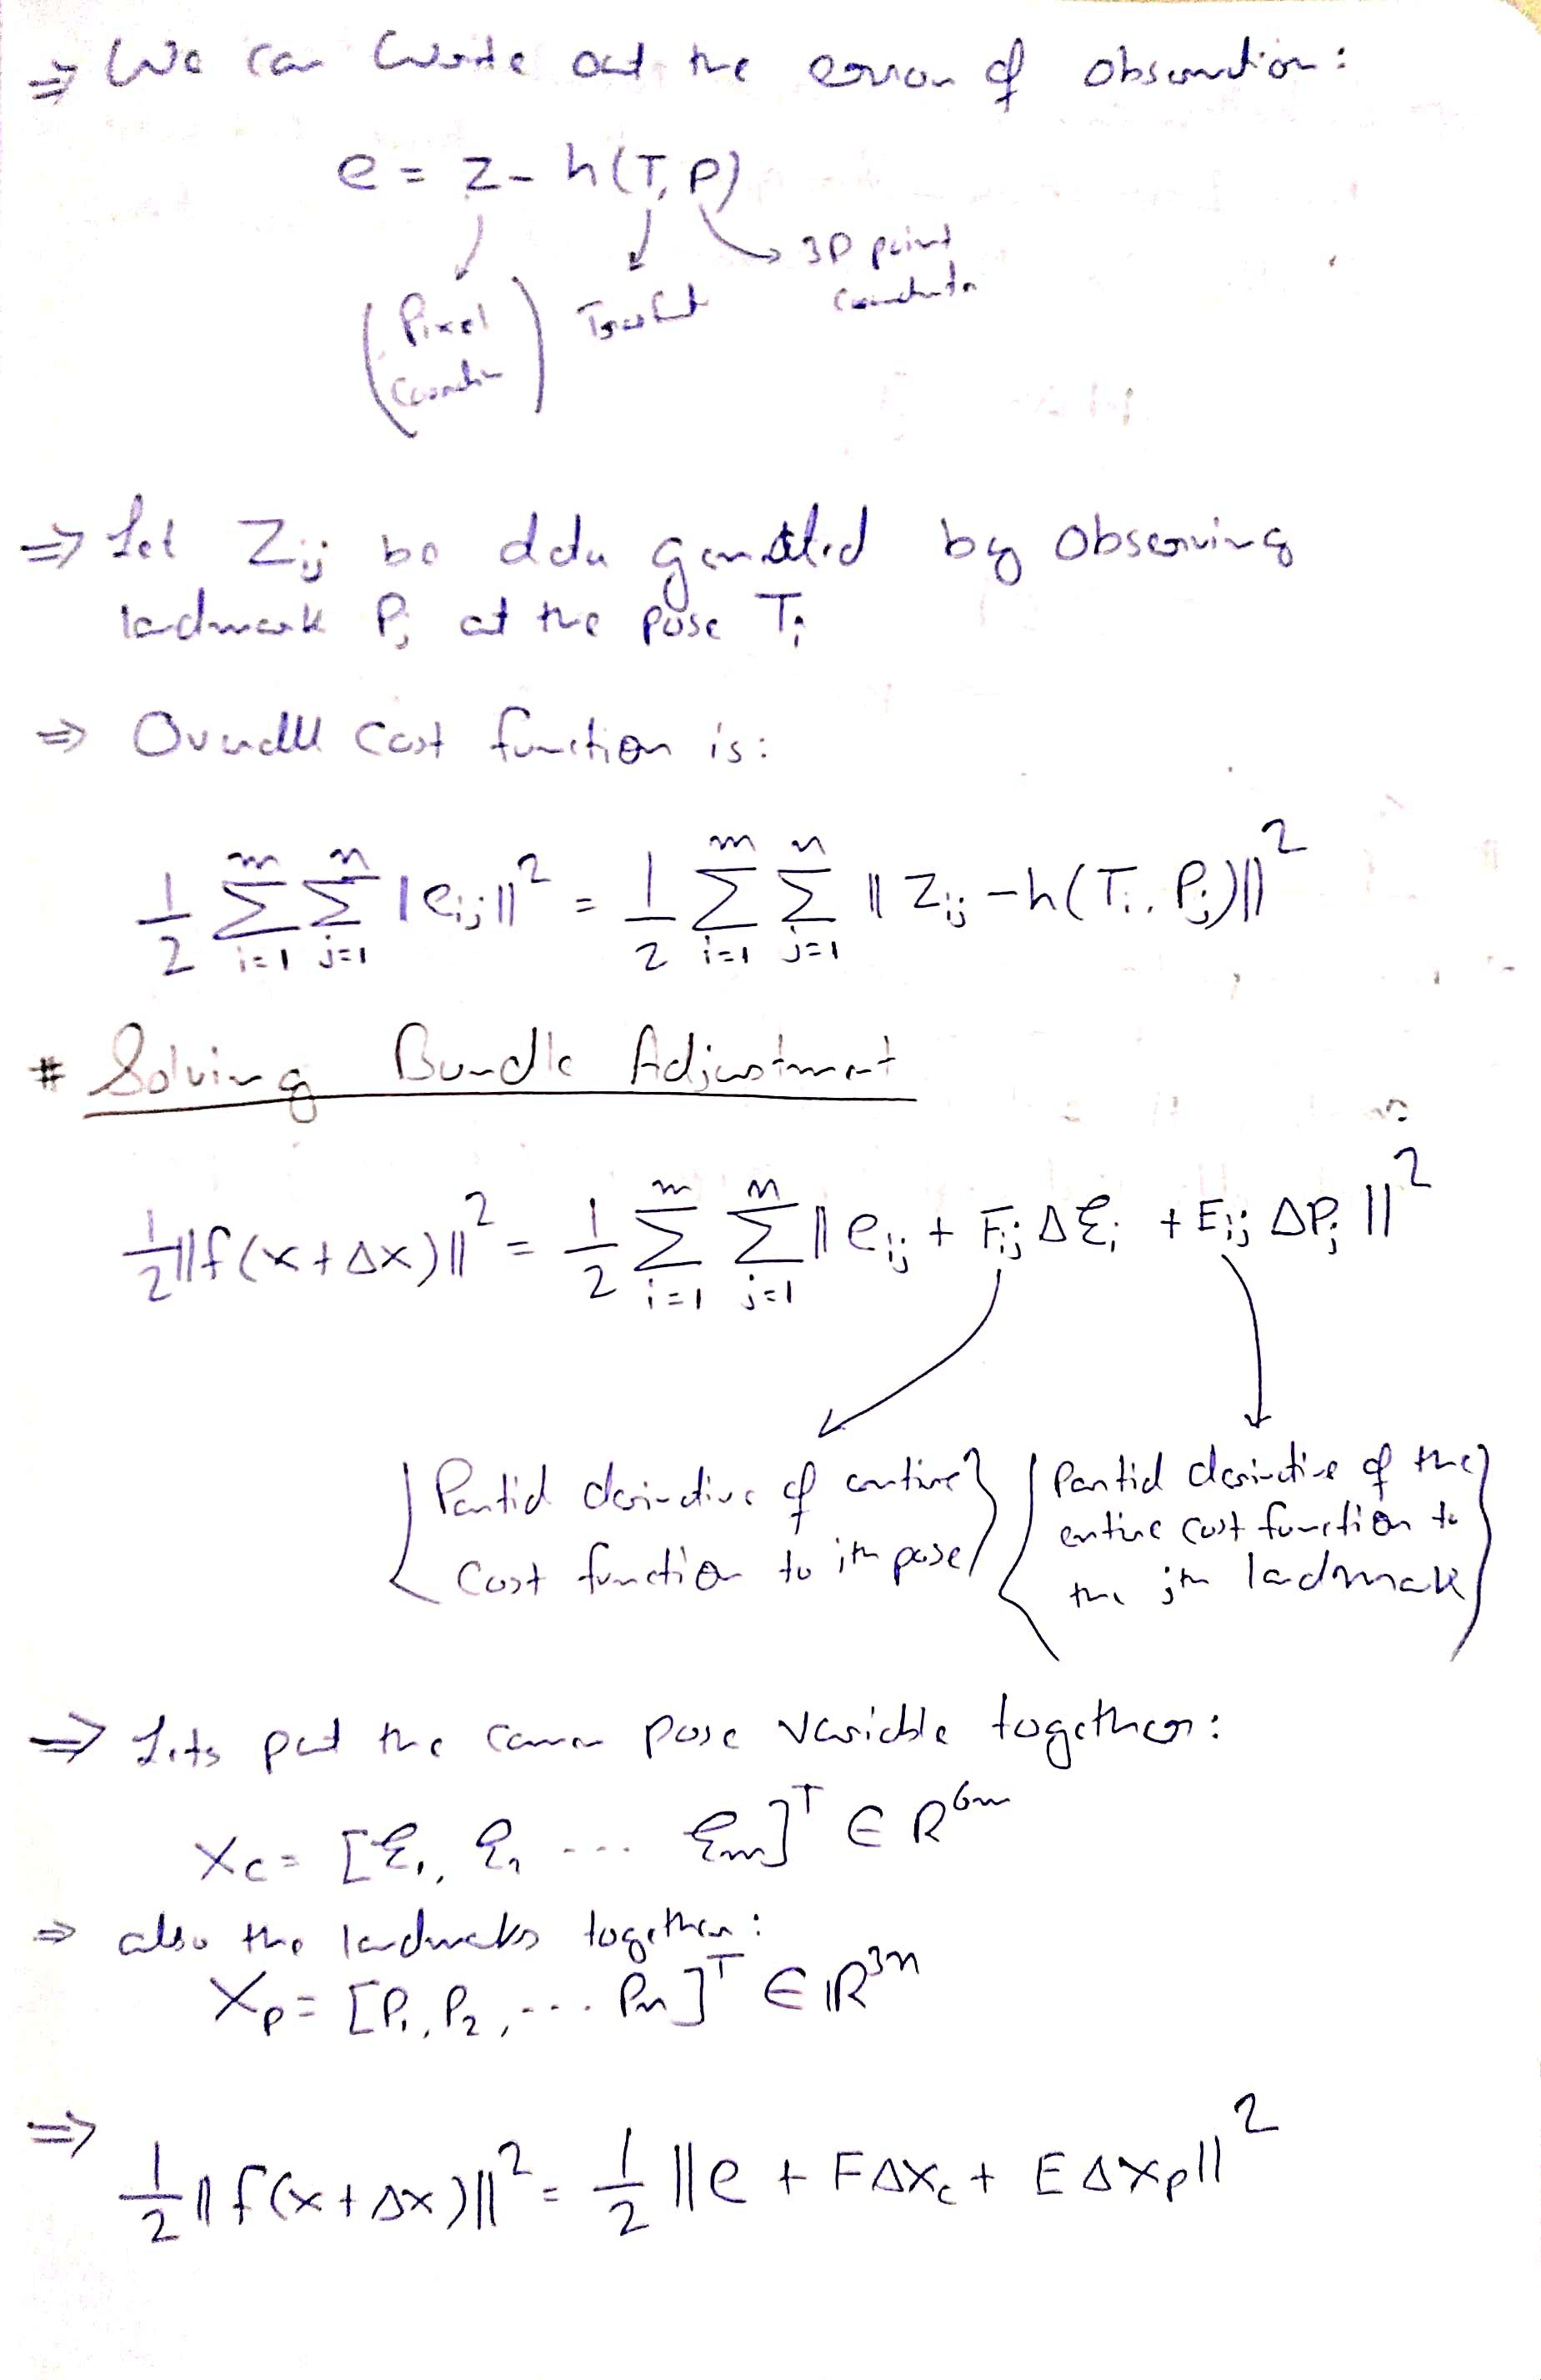 ⇒ We can write out the error of observation:
e = z - h(T, P)
3D point
(Pixel
⇒ Let Zij be data generated by observing
landmark Pj at the pose Ti
⇒ Overall cost function is:
1/2 Σ_{i=1}^{m} Σ_{j=1}^{n} |eij||² = 1/2 Σ_{i=1}^{m} Σ_{j=1}^{n} || Zij - h(Ti, Pj)||²
# Solving Bundle Adjustment
1/2||f(x+Δx)||² = 1/2 Σ_{i=1}^{m} Σ_{j=1}^{n} || eij + Fij Δξi + Eij ΔPj ||²
{Partial derivative of entire
cost function to ith pose}
{Partial derivative of the
entire cost function to
the jth landmark}
⇒ Lets put the camera pose variable together:
Xc = [ξ1, ξ2 ... ξm]^T ∈ R^6m
⇒ also the landmarks together:
Xp = [P1, P2, ... Pn]^T ∈ ℝ^3n
⇒
1/2 || f(x+Δx)||² = 1/2 ||e + FΔXc + EΔXp||²